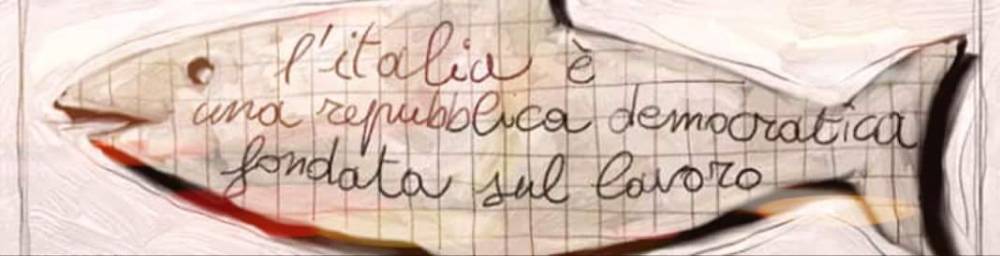 l'italia è
una repubblica democratica
fondata sul lavoro